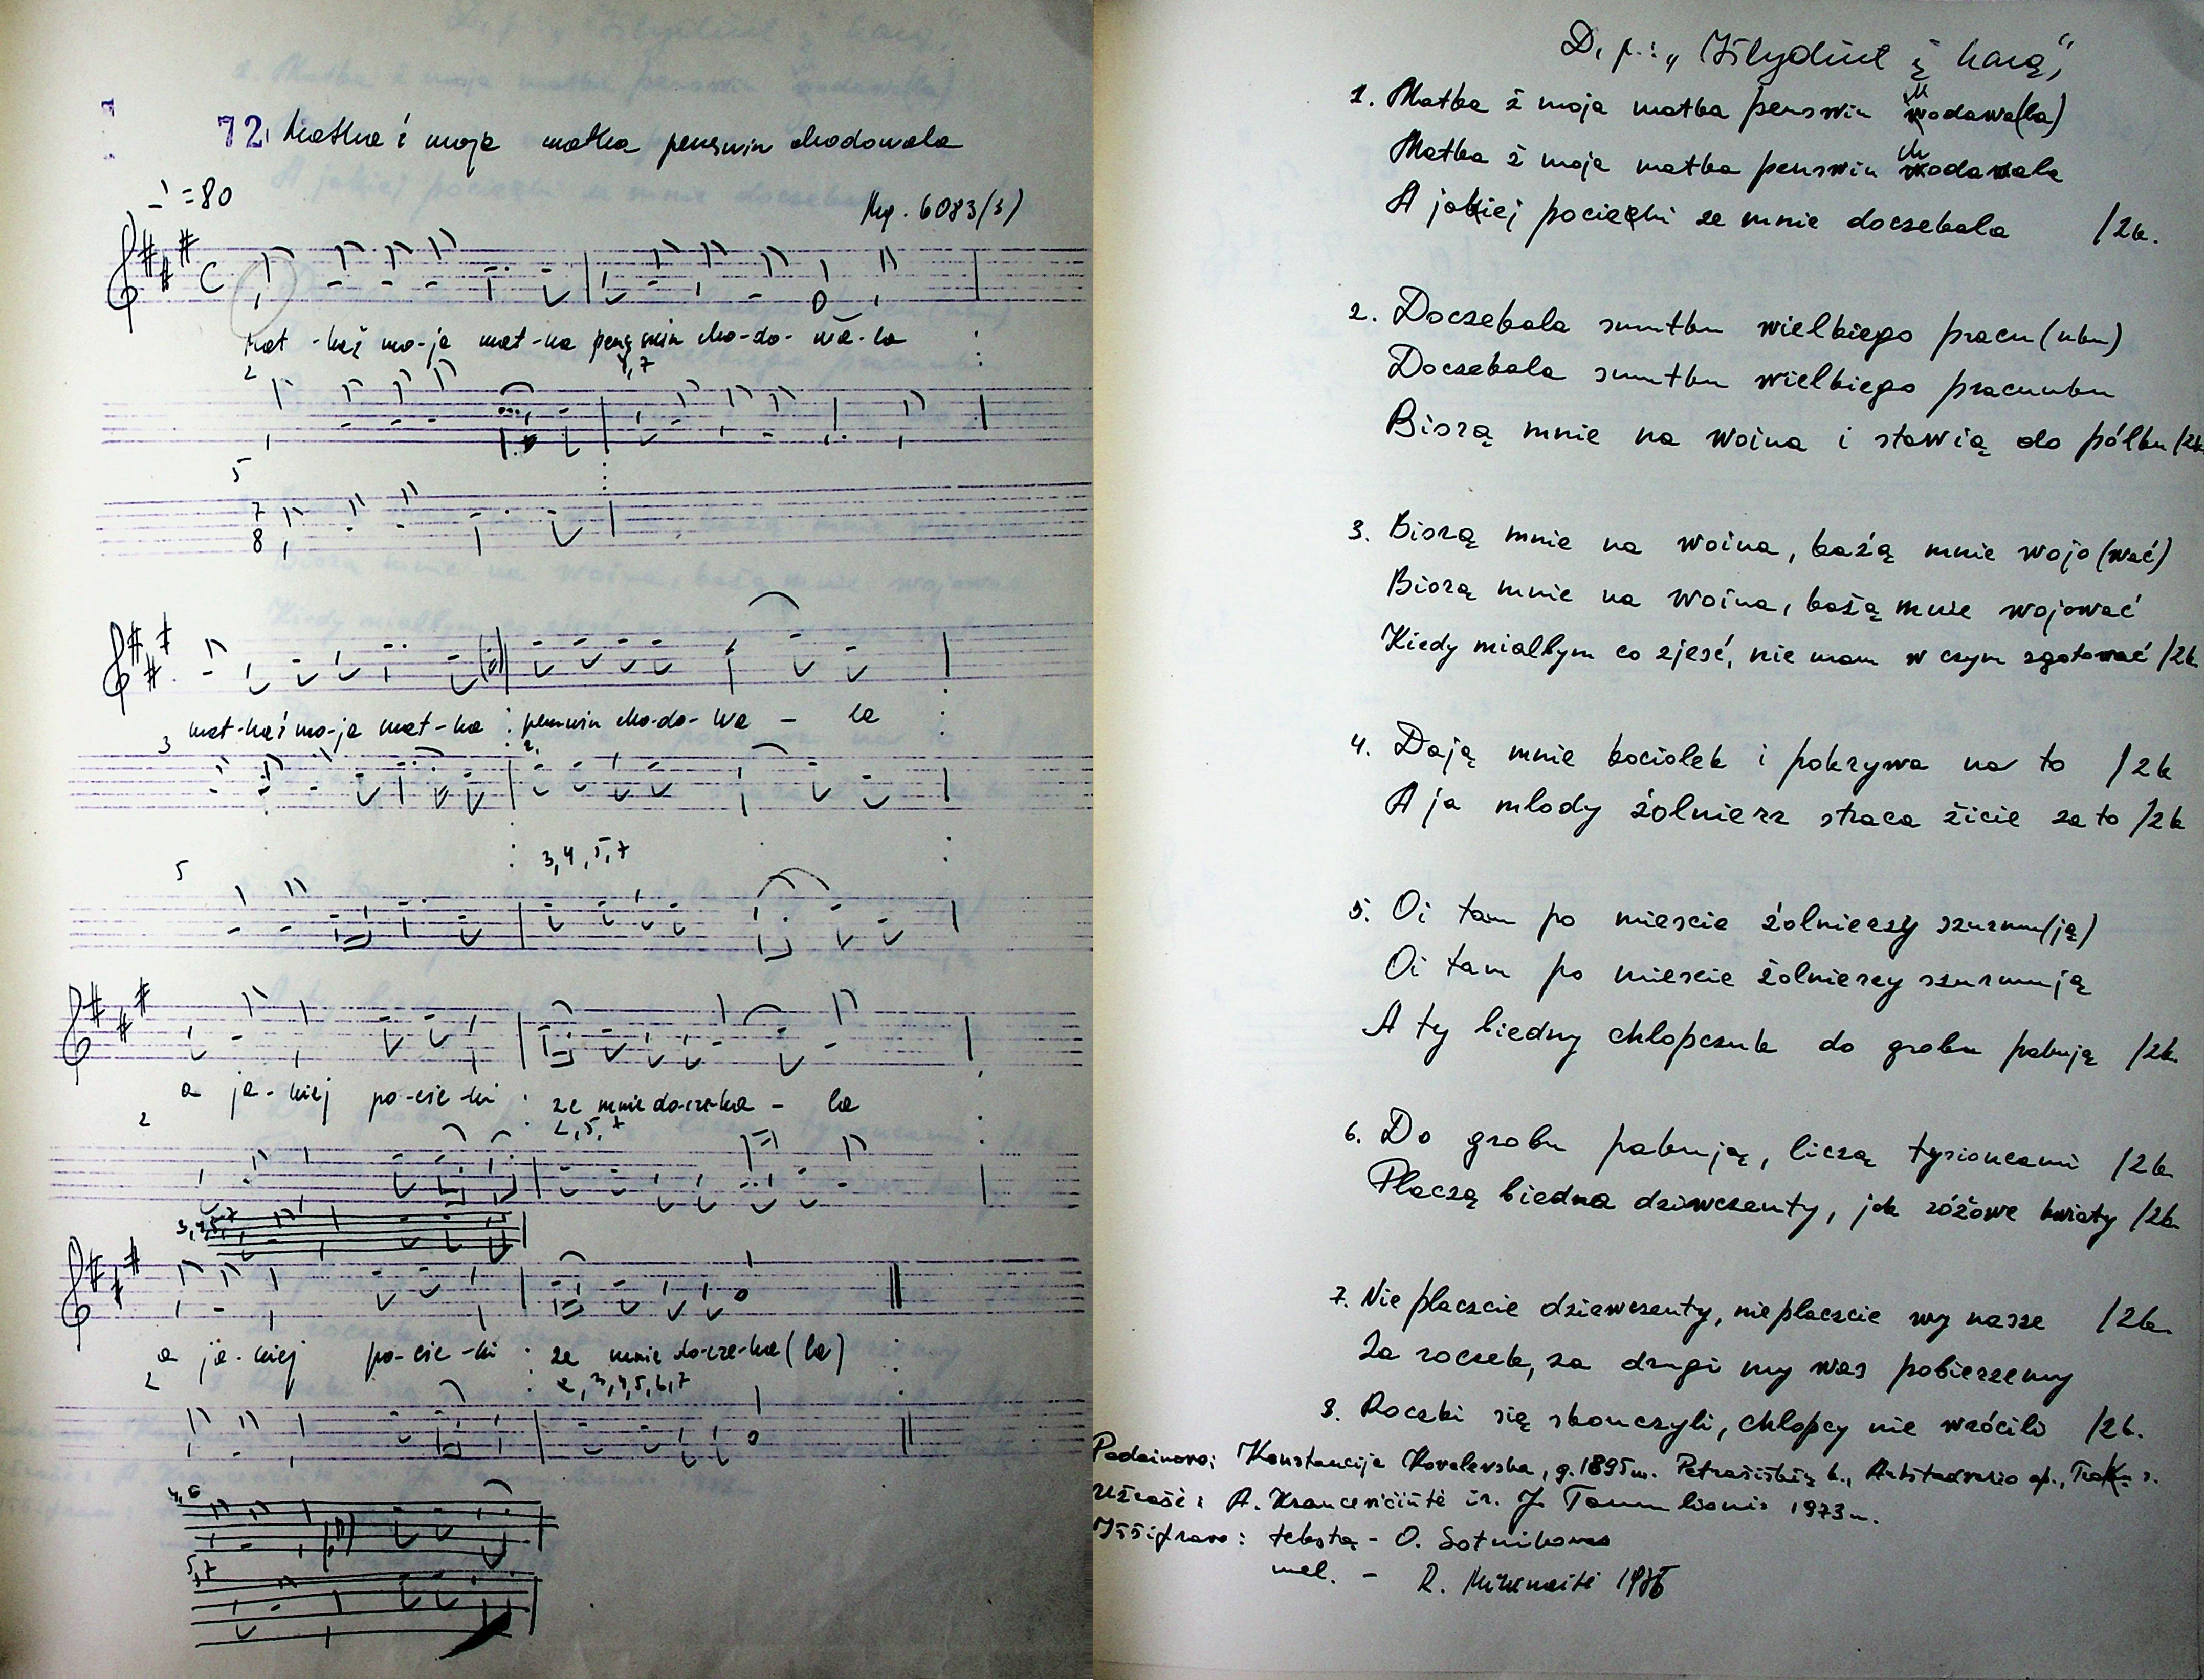 72. Matka ż moja matka penswin chodowala
♩=80
Mg. 6083(3)
mat-każ mo-ja mat-ka penswin cho-do-wa-la
4,7
2
5
7
8
mat-każ mo-ja mat-ka penswin cho-do-wa - la
3
2.
3,4,5,7
5
a ja-kiej po-cie-ki ze mnie do-cze-ka - la
2,5,7
2
a ja-kiej po-cie-ki ze mnie do-cze-ka(la)
2,3,4,5,6,7
2
4,6
5,7
D. p.: „Išlydint į karą"
1. Matka ż moja matka penswin chodawa(la)
Matka ż moja matka penswin chodawala
A jakiej pociechi ze mnie doczekala /2k.
2. Doczekala smutku wielkiego pracu(nku)
Doczekala smutku wielkiego pracunku
Biorą mnie na woina i stawią do półku /2k
3. Biorą mnie na woina, każą mnie wojo(wać)
Biorą mnie na woina, każą mnie wojować
Kiedy mialbym co zjesć, nie mam w czym zgotować /2k
4. Dają mnie kociolek i pokrywa na to /2k
A ja mlody żolnierz straca żicie za to /2k
5. Oi tam po miescie żolnierzy szurmu(ją)
Oi tam po miescie żolnierzy szurmują
A ty biedny chlopczuk do grobu pakują /2k.
6. Do grobu pakują, liczą tysioncami /2k
Placzą biedna dziewczenty, jak różowe kwiaty /2k
7. Nie placzcie dziewczenty, nie placzcie wy nasze /2k.
Za roczek, za drugi my was pobierzemy
8. Roczki się skonczyli, chlopcy nie wrócili /2k.
Padainavo: Konstancija Kovalevska, g. 1895 m. Petrašiškių k., Aukštadvario ap., Trakų r.
Užrašė: A. Krancevičiūtė ir. J. 1973 m.
Iššifravo: tekstą - O. Sotnikovas
mel. - R.